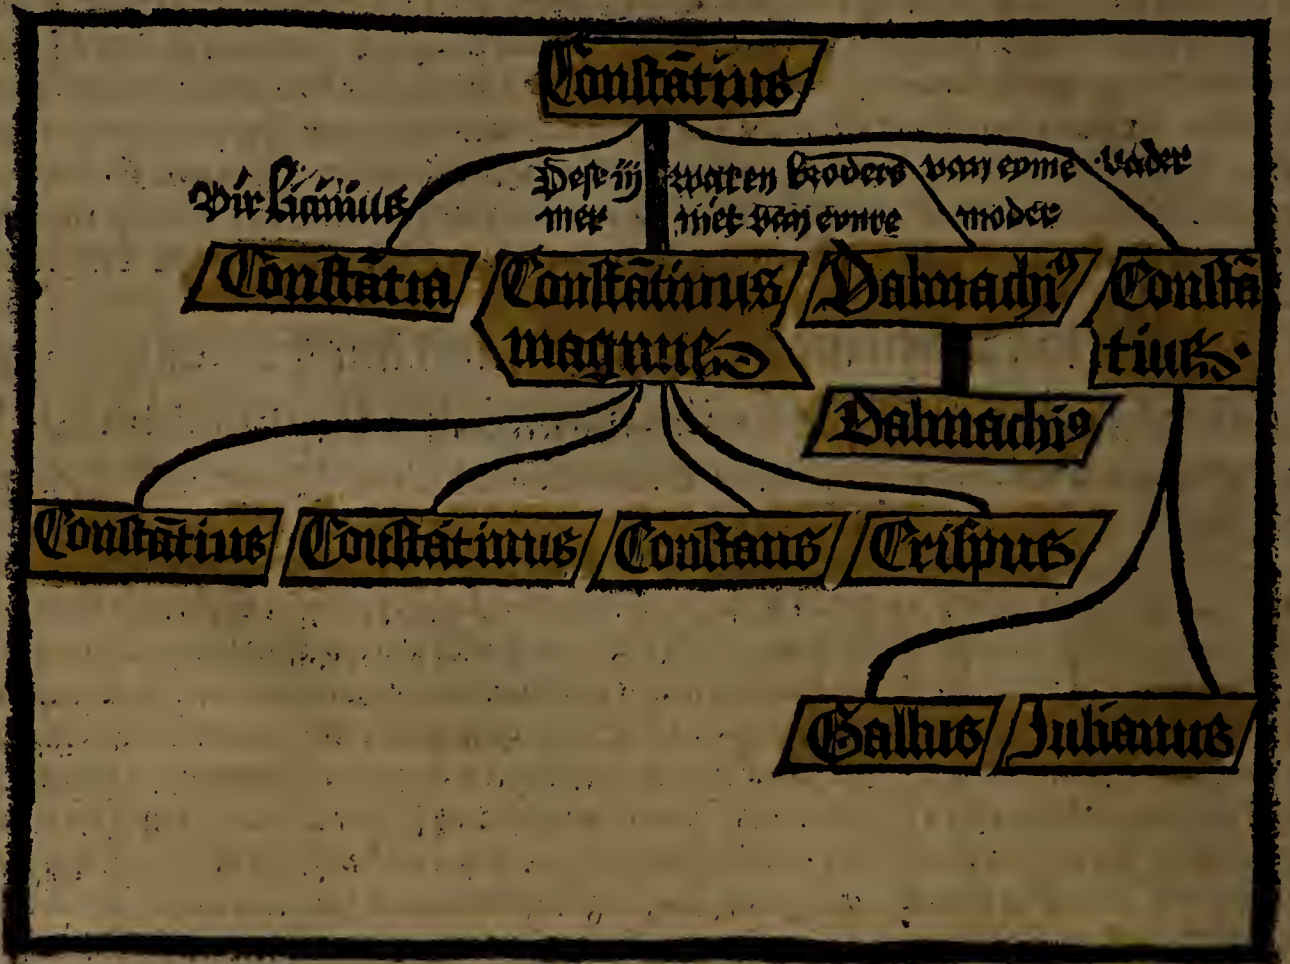 Constātius
Vir Licinius
Dese iij waren broders van eyme vader
mer niet van eynre moder
Constātia
Constātinus
magnus
Dalmachiꝰ
Constā
tius.
Dalmachiꝰ
Constātius
Constātinus
Constans
Crispus
Gallus
Julianus